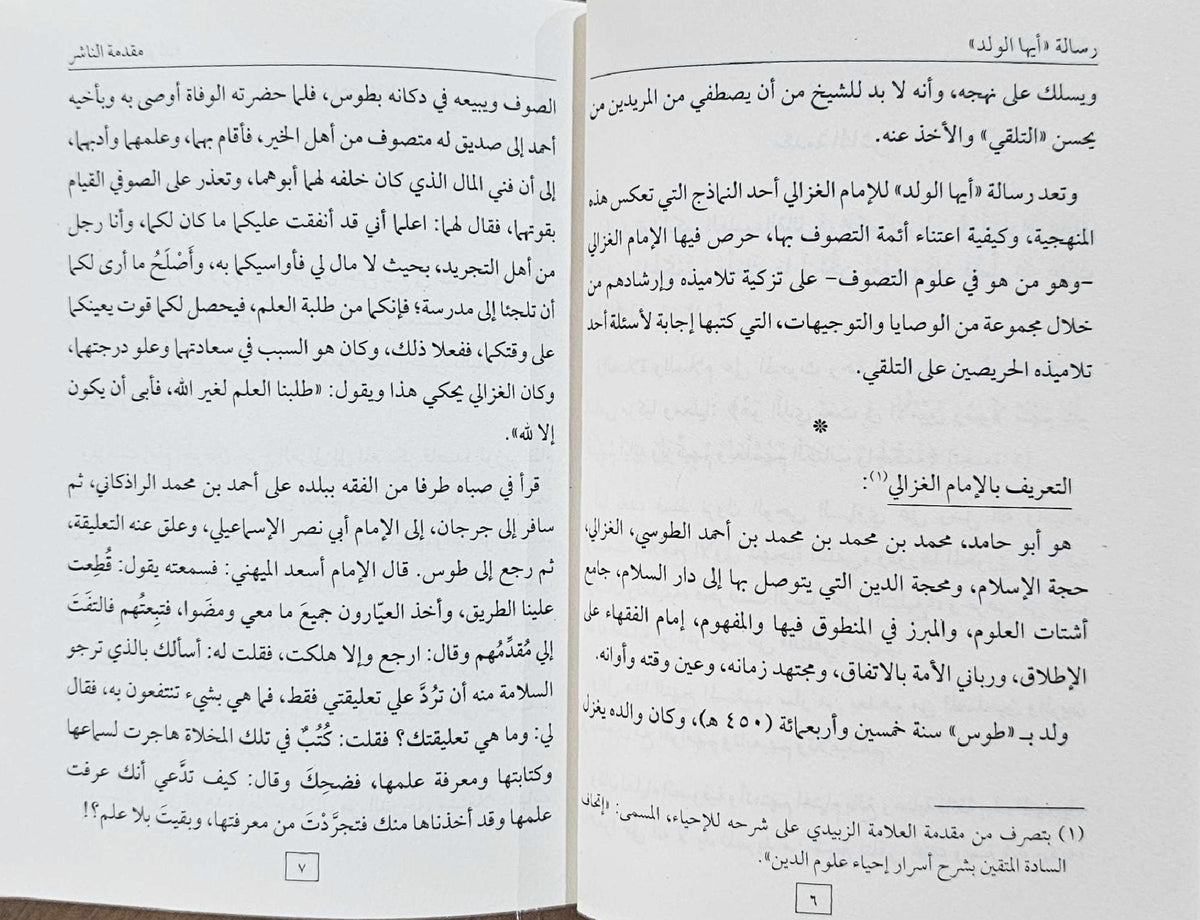 رسالة «أيها الولد»
ويسلك على نهجه، وأنه لا بد للشيخ من أن يصطفي من المريدين من
يحسن «التلقي» والأخذ عنه.
وتعد رسالة «أيها الولد» للإمام الغزالي أحد النماذج التي تعكس هذه
المنهجية، وكيفية اعتناء أئمة التصوف بها، حرص فيها الإمام الغزالي
-وهو من هو في علوم التصوف- على تزكية تلاميذه وإرشادهم من
خلال مجموعة من الوصايا والتوجيهات، التي كتبها إجابة لأسئلة أحد
تلاميذه الحريصين على التلقي.
*
التعريف بالإمام الغزالي(١):
هو أبو حامد، محمد بن محمد بن محمد بن أحمد الطوسي، الغزالي،
حجة الإسلام، ومحجة الدين التي يتوصل بها إلى دار السلام، جامع
أشتات العلوم، والمبرز في المنطوق فيها والمفهوم، إمام الفقهاء على
الإطلاق، ورباني الأمة بالاتفاق، ومجتهد زمانه، وعين وقته وأوانه.
ولد بـ «طوس» سنة خمسين وأربعمائة (٤٥٠ هـ)، وكان والده يغزل
(١) بتصرف من مقدمة العلامة الزبيدي على شرحه للإحياء، المسمى: «إتحاف
السادة المتقين بشرح أسرار إحياء علوم الدين».
٦
مقدمة الناشر
الصوف ويبيعه في دكانه بطوس، فلما حضرته الوفاة أوصى به وبأخيه
أحمد إلى صديق له متصوف من أهل الخير، فأقام بهما، وعلمهما وأدبهما،
إلى أن فني المال الذي كان خلفه لهما أبوهما، وتعذر على الصوفي القيام
بقوتهما، فقال لهما: اعلما أني قد أنفقت عليكما ما كان لكما، وأنا رجل
من أهل التجريد، بحيث لا مال لي فأواسيكما به، وأَصْلَحُ ما أرى لكما
أن تلجئا إلى مدرسة؛ فإنكما من طلبة العلم، فيحصل لكما قوت يعينكما
على وقتكما، ففعلا ذلك، وكان هو السبب في سعادتهما وعلو درجتهما،
وكان الغزالي يحكي هذا ويقول: «طلبنا العلم لغير الله، فأبى أن يكون
إلا لله».
قرأ في صباه طرفا من الفقه ببلده على أحمد بن محمد الراذكاني، ثم
سافر إلى جرجان، إلى الإمام أبي نصر الإسماعيلي، وعلق عنه التعليقة،
ثم رجع إلى طوس. قال الإمام أسعد الميهني: فسمعته يقول: قُطِعت
علينا الطريق، وأخذ العيّارون جميعَ ما معي ومضَوا، فتبِعتُهم فالتفَتَ
إلي مُقدِّمُهم وقال: ارجع وإلا هلكت، فقلت له: أسألك بالذي ترجو
السلامة منه أن تردَّ علي تعليقتي فقط، فما هي بشيء تنتفعون به، فقال
لي: وما هي تعليقتك؟ فقلت: كُتُبٌ في تلك المخلاة هاجرت لسماعها
وكتابتها ومعرفة علمها، فضحِكَ وقال: كيف تدَّعي أنك عرفت
علمها وقد أخذناها منك فتجرَّدْتَ من معرفتها، وبقيتَ بلا علم؟!
٧